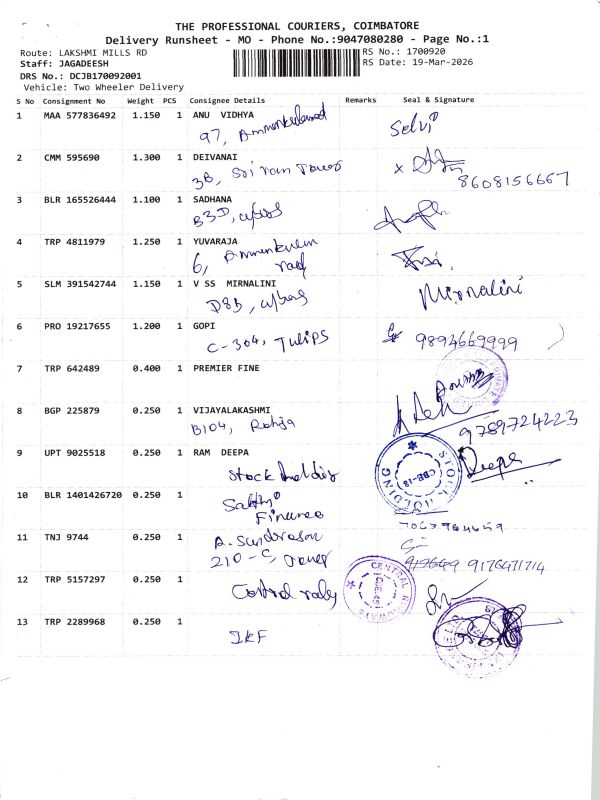 THE PROFESSIONAL COURIERS, COIMBATORE
Delivery Runsheet - MO - Phone No.:9047080280 - Page No.:1
Route: LAKSHMI MILLS RD RS No.: 1700920
Staff: JAGADEESH RS Date: 19-Mar-2026
DRS No.: DCJB170092001
Vehicle: Two Wheeler Delivery
S No Consignment No Weight PCS Consignee Details Remarks Seal & Signature
1 MAA 577836492 1.150 1 ANU VIDHYA
97, Selvi
2 CMM 595690 1.300 1 DEIVANAI
3B, Sri ram Tower 8608156667
3 BLR 165526444 1.100 1 SADHANA
B3D,
4 TRP 4811979 1.250 1 YUVARAJA
6, Ammankulam
road
5 SLM 391542744 1.150 1 V SS MIRNALINI
D8D, Mirnalini
6 PRO 19217655 1.200 1 GOPI
C-304, Tulips 9894669999
7 TRP 642489 0.400 1 PREMIER FINE
8 BGP 225879 0.250 1 VIJAYALAKASHMI
B104, Raheja 9789724223
9 UPT 9025518 0.250 1 RAM DEEPA
Stock holding Deepa
STOCK HOLDING
CBE-18
10 BLR 1401426720 0.250 1
Sakthi
Finance
11 TNJ 9744 0.250 1
A. Sundrasan
210-C, Tower 9176471714
12 TRP 5157297 0.250 1
Central
CENTRAL
13 TRP 2289968 0.250 1
IKF